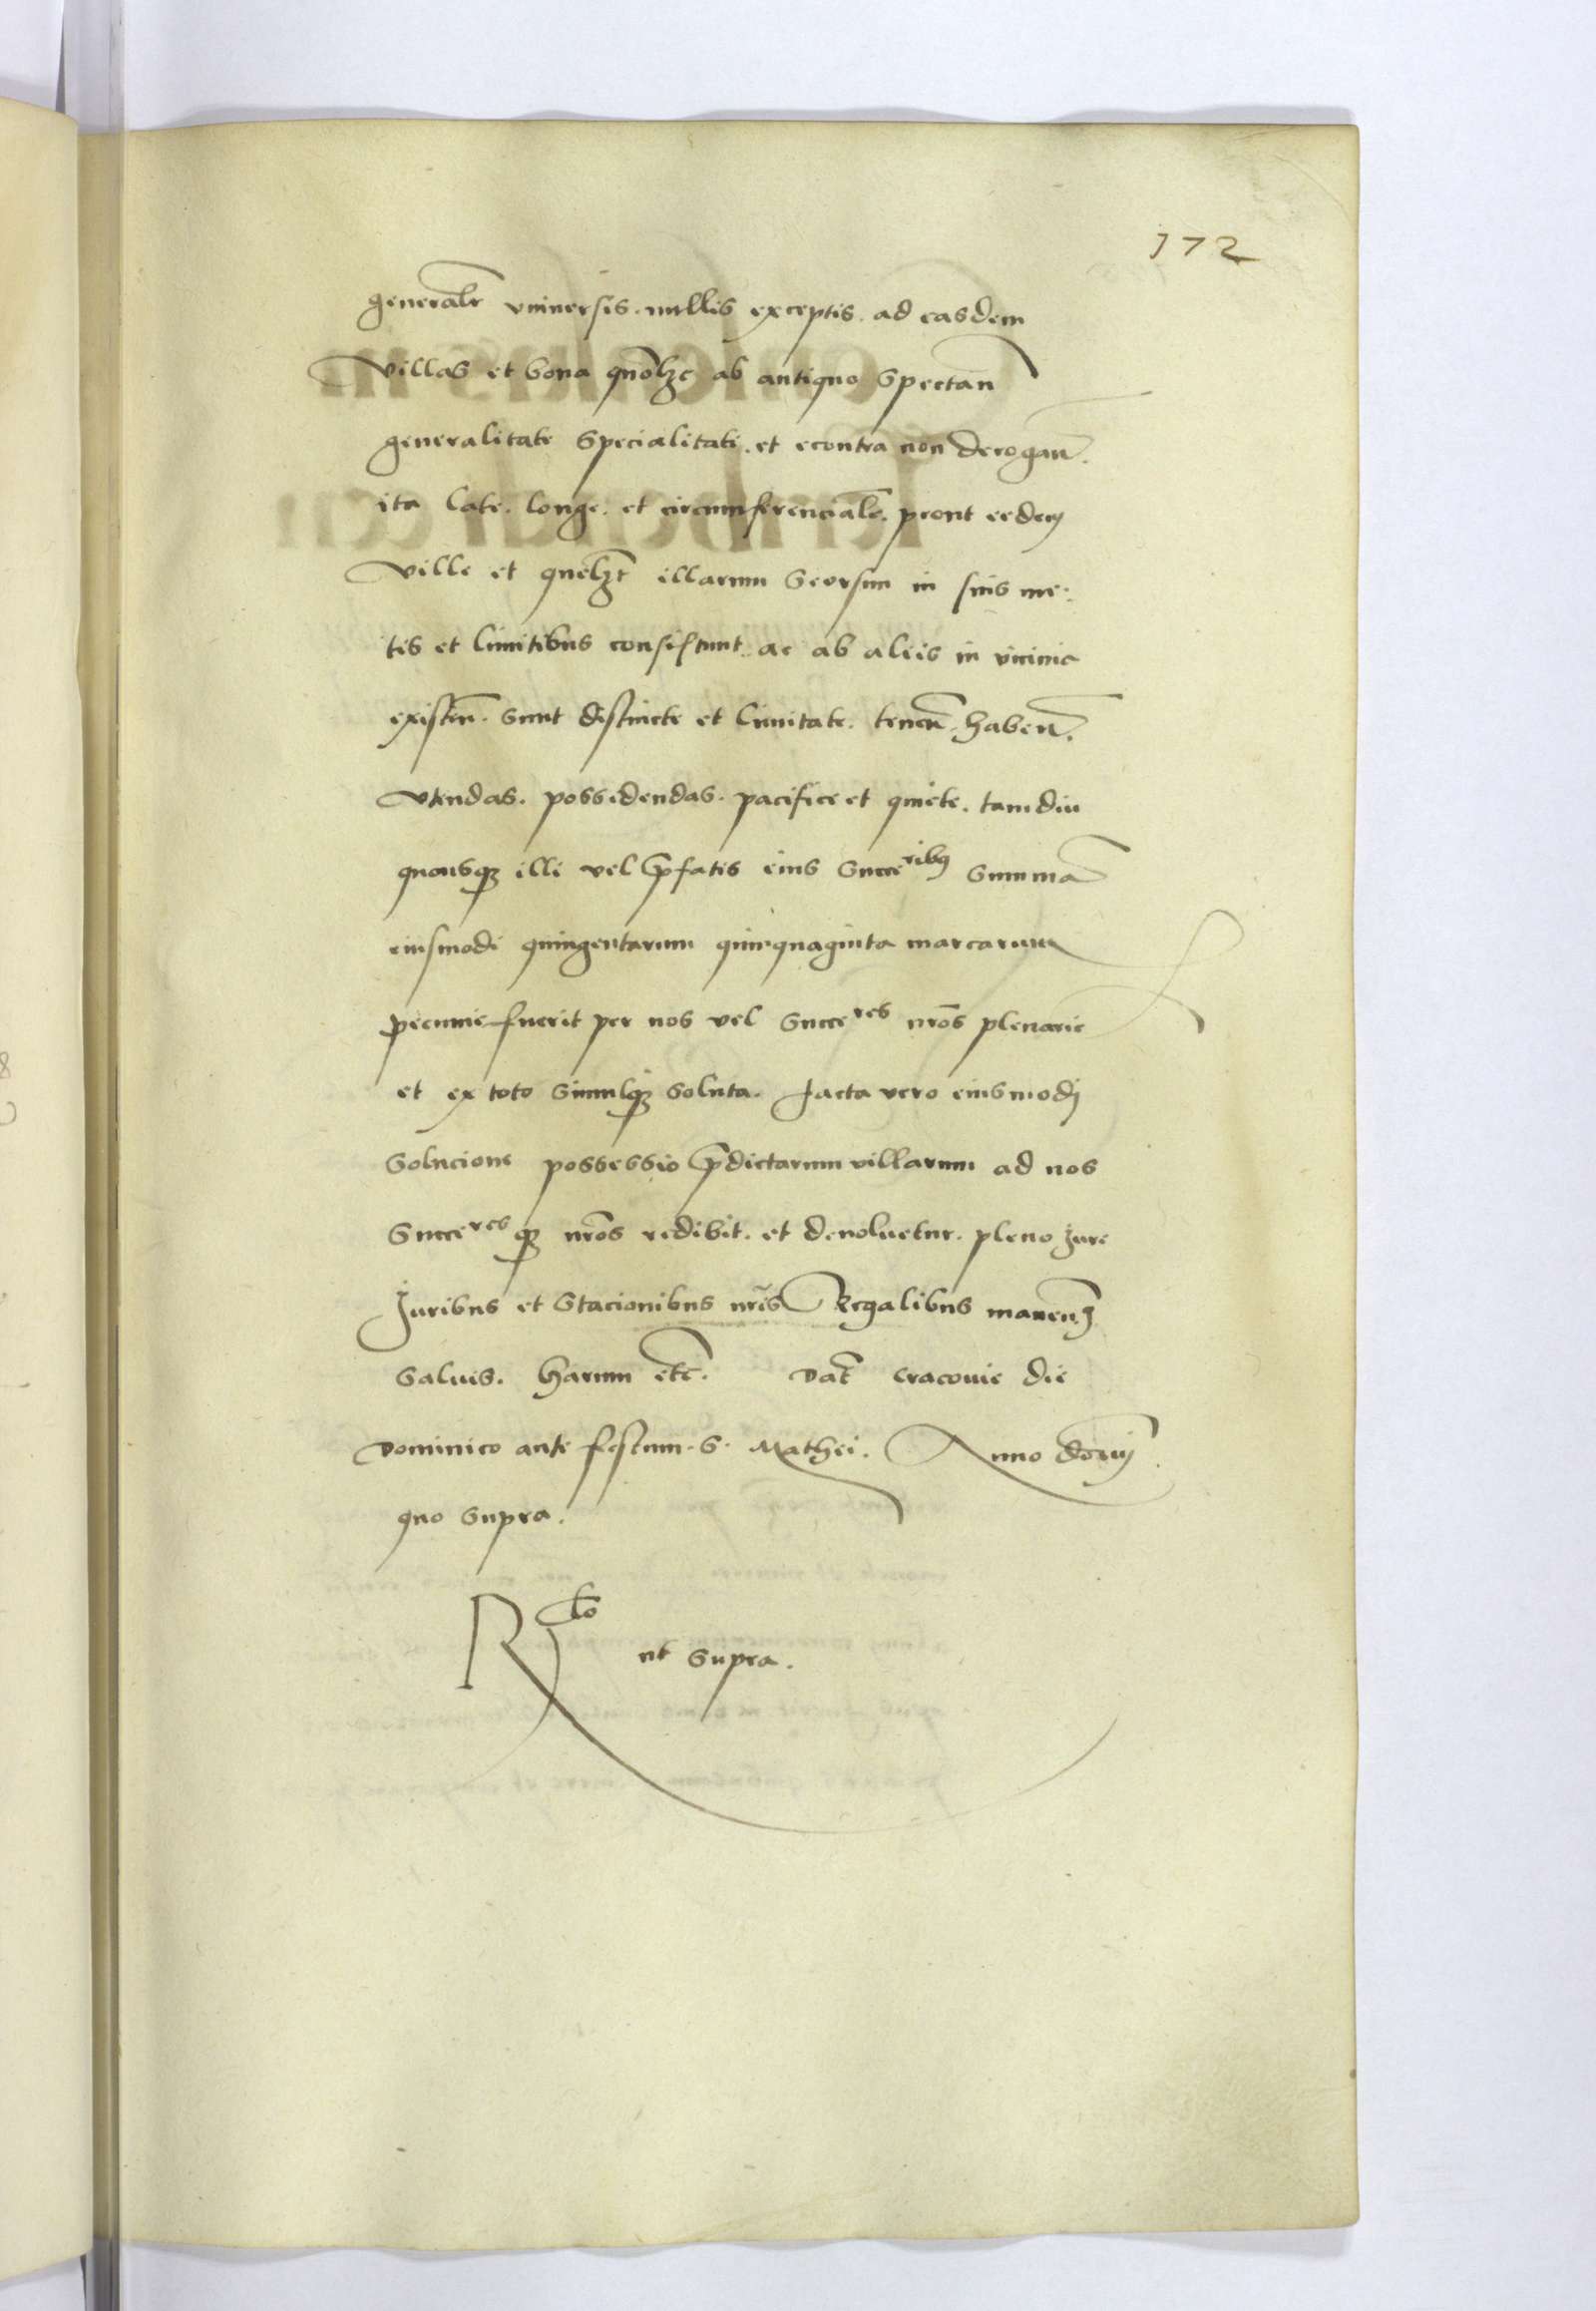 172
generalr vniversis. nullis exceptis. ad easdem
villas et bona quolz ab antiquo spectan
generalitate specialitati. et econtra non derogan.
ita late. longe. et circumferencialr. prout eedem
ville et quelzt illarum seorsum in suis me:
tis et limitibus consistunt. ac ab aliis in vicinia
existen. sunt distincte et limitate. tenen. haben.
vtendas. possidendas. pacifice et quiete. tamdiu
quousqz illi vel pfatis eius succeribus summa
eiusmodi quingentarum quinquaginta marcarum
pecunie fuerit per nos vel succeres nros plenarie
et ex toto simulqz soluta. facta vero eiusmodi
solucione possessio pdictarum villarum ad nos
succeresqz nros redibit. et devoluetur. pleno jure
Juribus et stacionibus nris Regalibus manen.
salvis. harum etc. Dat Cracouie die
dominico ante festum. S. Mathei. Anno domij
quo supra.
Rlo
ut supra.